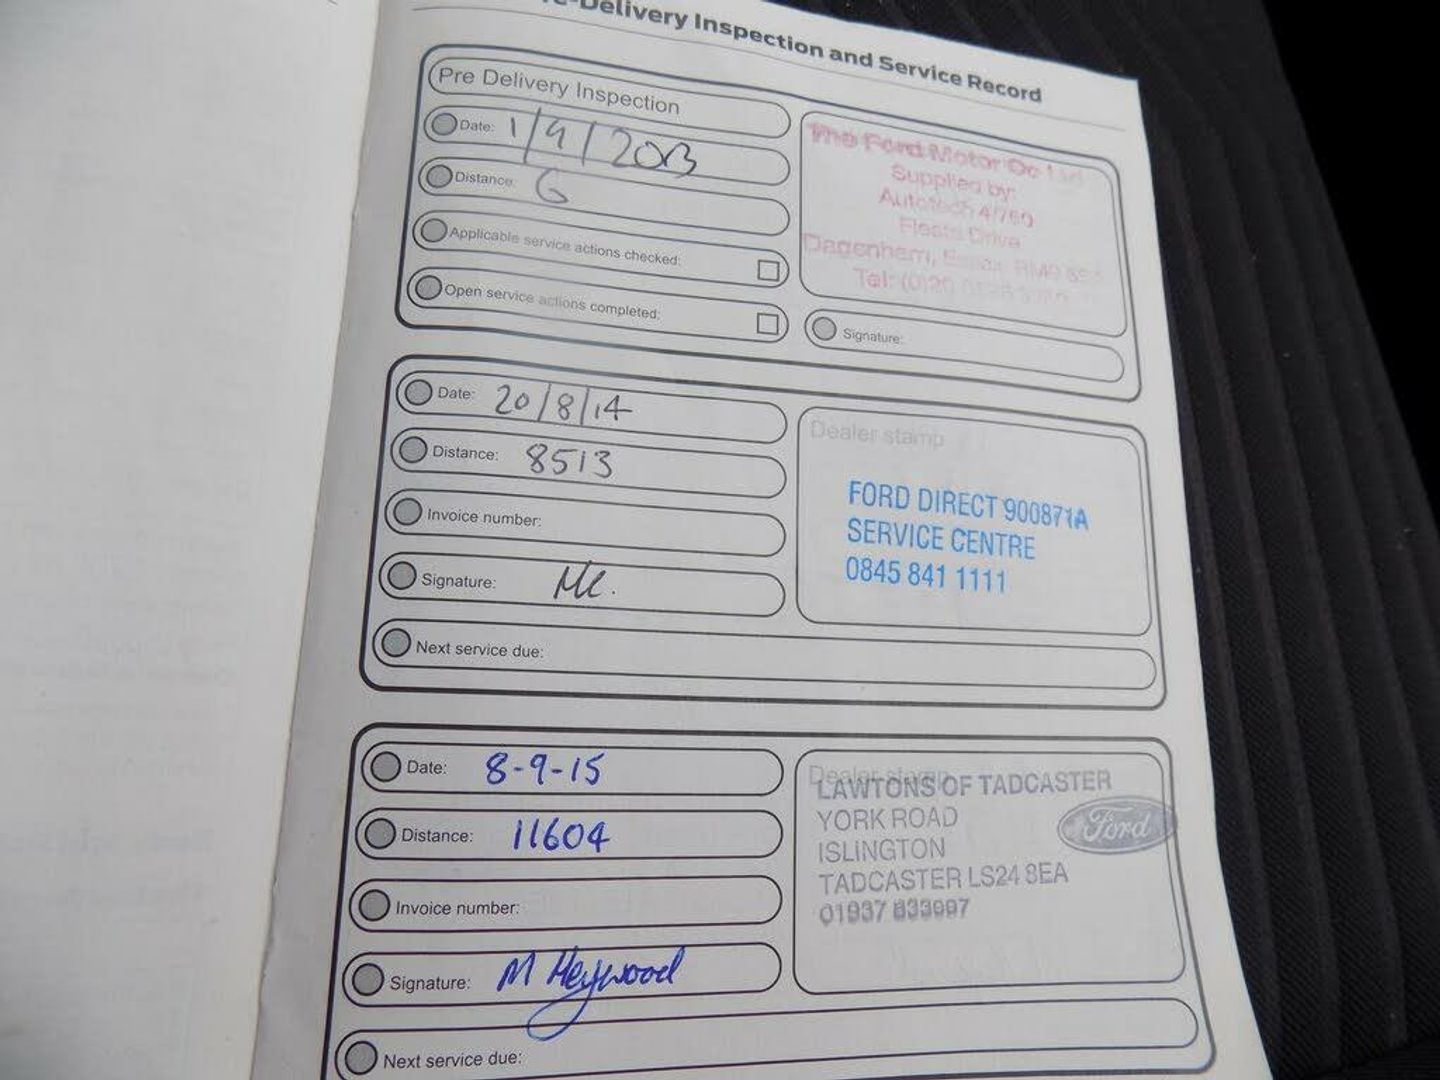 -Delivery Inspection and Service Record
Pre Delivery Inspection
Date: 1/9/2013
Distance: 6
Applicable service actions checked:
Open service actions completed:
The Ford Motor Co Ltd
Supplied by:
Autotech 4/760
Fiesta Drive
Dagenham, Essex RM9
Tel:
Signature:
Date: 20/8/14
Distance: 8513
Invoice number:
Signature:
Next service due:
Dealer stamp
FORD DIRECT 900871A
SERVICE CENTRE
0845 841 1111
Date: 8-9-15
Distance: 11604
Invoice number:
Signature: M Heywood
Next service due:
Dealer stamp
LAWTONS OF TADCASTER
YORK ROAD
ISLINGTON
TADCASTER LS24 8EA
01937 833997
Ford